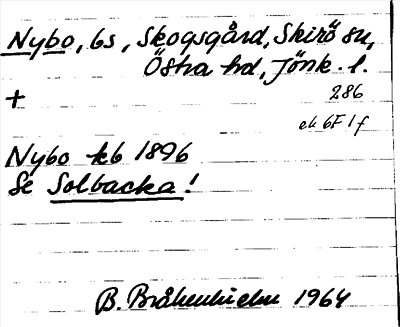 Nybo, bs, Skogsgård, Skirö sn,
Östra hd, Jönk. l.
+ 286
ek 6F 1f
Nybo kb 1896
Se Solbacka!
B. Bråkenhielm 1964